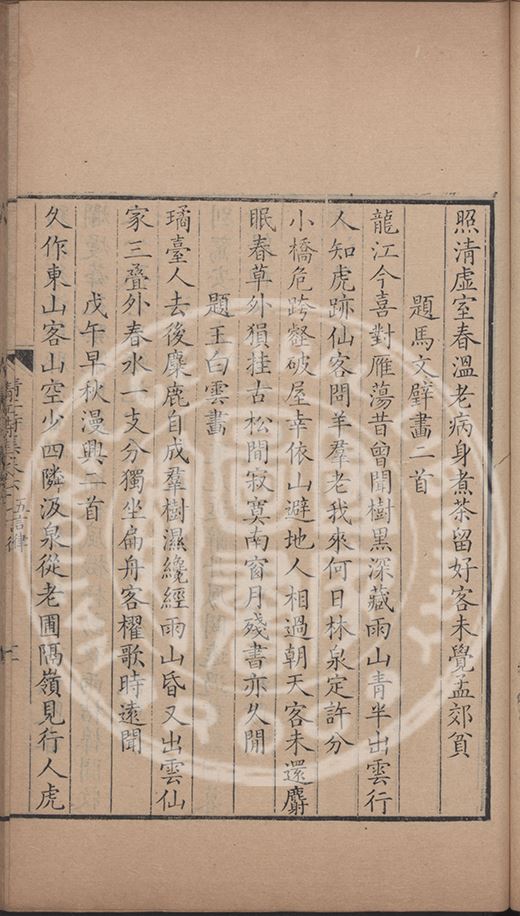 照清虛室春溫老病身煮茶留好客未覺孟郊貧
題馬文璧畫二首
龍江今喜對雁蕩昔曾聞樹黑深藏雨山青半出雲行
人知虎跡仙客問羊羣老我來何日林泉定許分
小橋危跨壑破屋幸依山避地人相過朝天客未還麝
眠春草外猿挂古松間寂寞南窗月殘書亦久閒
題王白雲畫
璚臺人去後麋鹿自成羣樹濕纔經雨山昏又出雲仙
家三叠外春水一支分獨坐扁舟客櫂歌時遠聞
戊午早秋漫興二首
久作東山客山空少四隣汲泉從老圃隔嶺見行人虎
五言律